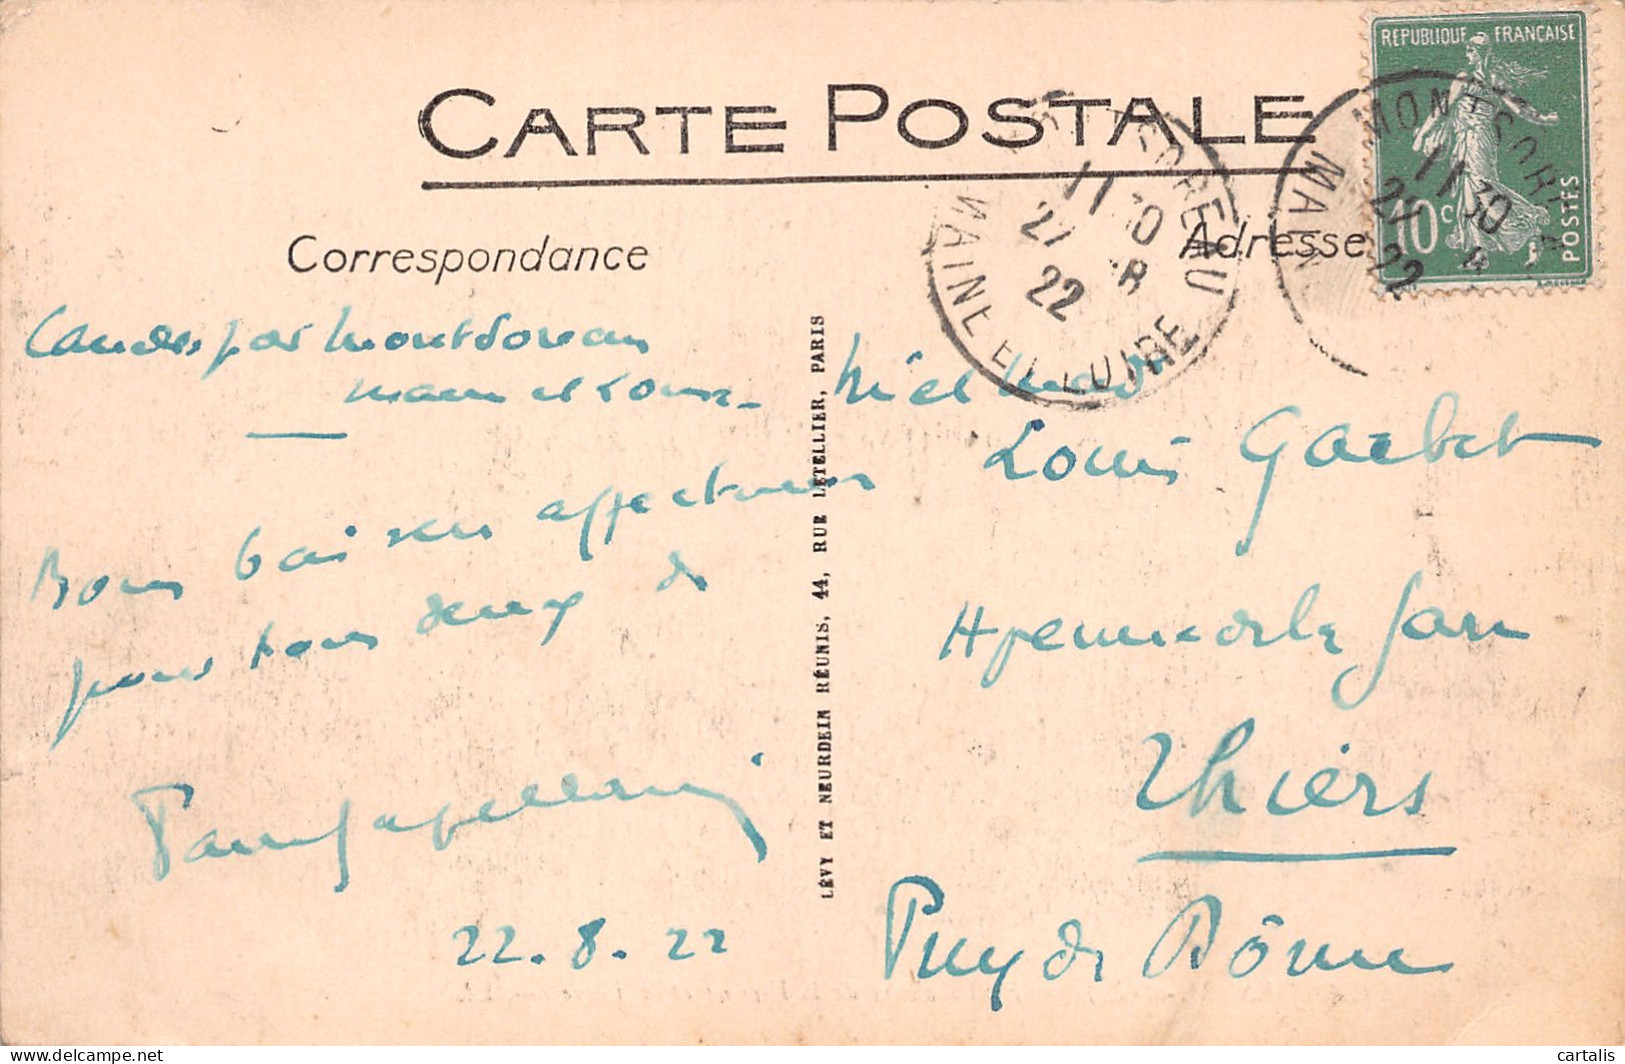 CARTE POSTALE
Correspondance
Adresse
REPUBLIQUE FRANÇAISE
10c
POSTES
MONTSOREAU
11 30
22
MAINE ET LOIRE
MONTSOREAU
11 30
22
Candes par Montsoreau
Maine et Loire
Bons baisers affectueux
pour tous deux de
22.8.22
LÉVY ET NEURDEIN RÉUNIS, 44, RUE LETELLIER, PARIS
Louis
Avenue de la Gare
Thiers
Puy de Dôme
cartalis
delcampe.net